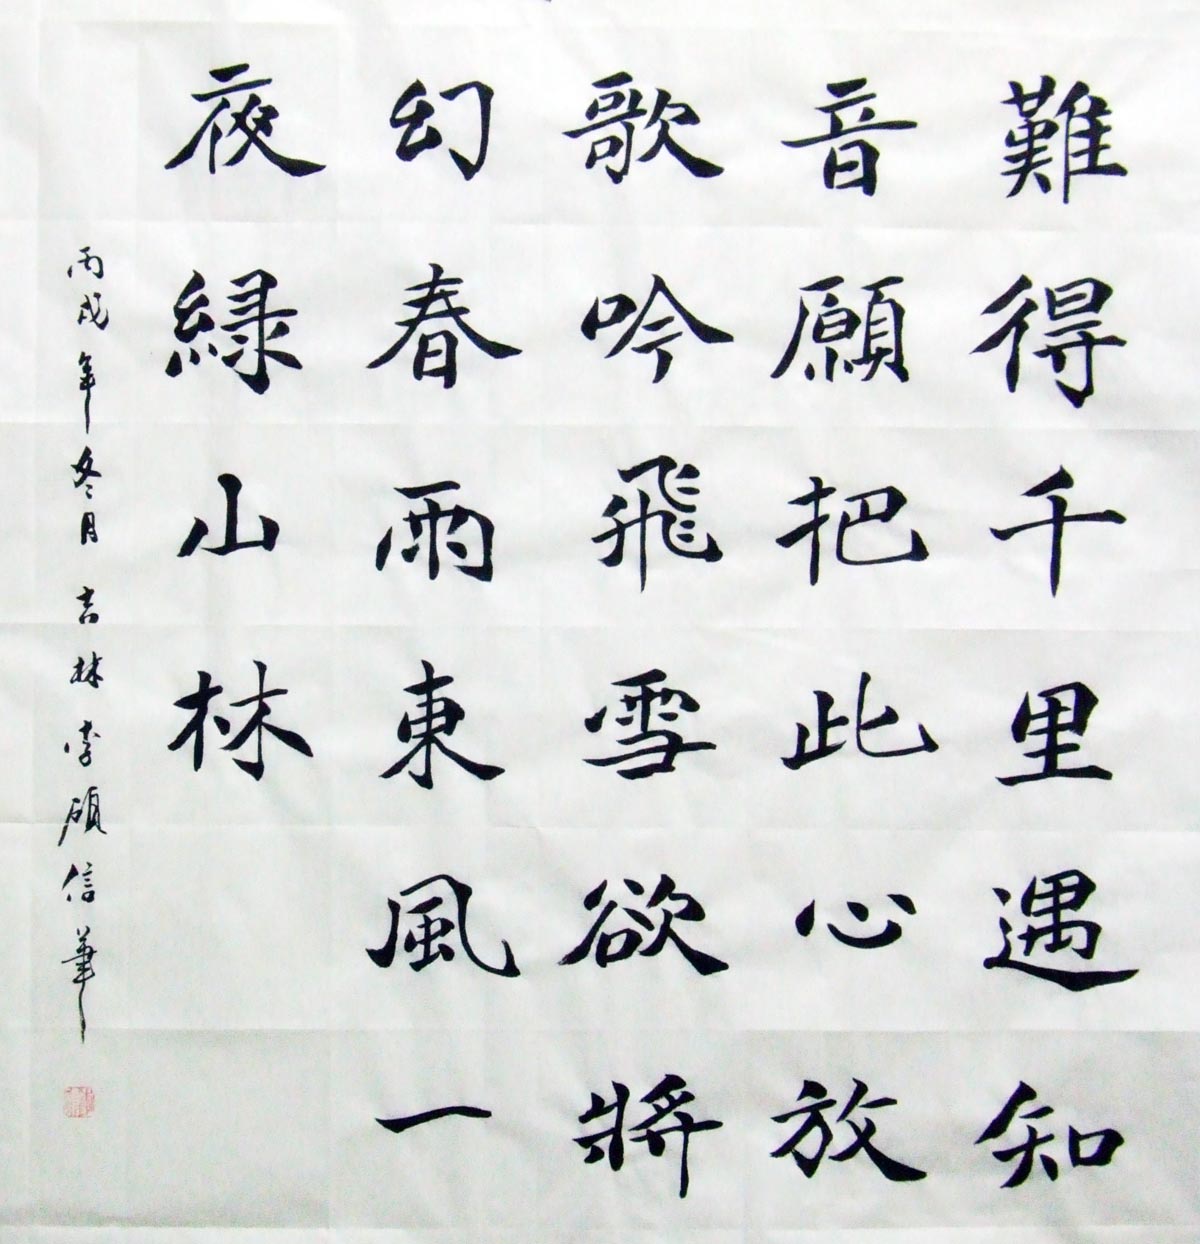 難得千里遇知
音願把此心放
歌吟飛雪欲將
幻春雨東風一
夜緑山林
丙戌年冬月吉林李碩信筆